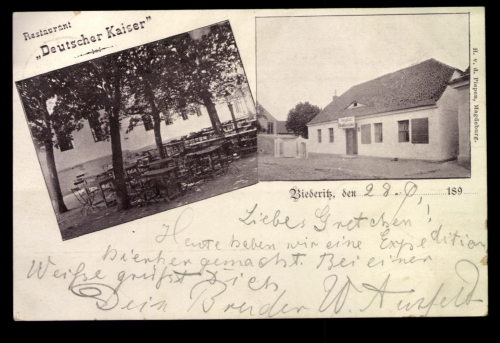 Restaurant
„Deutscher Kaiser“
H. v. d. Papen, Magdeburg.
Biederitz, den 28. 189
Liebes Gretchen!
Heute haben wir eine Expedition
hierher gemacht. Bei einer
Weiße grüßt Dich
Dein Bruder W.